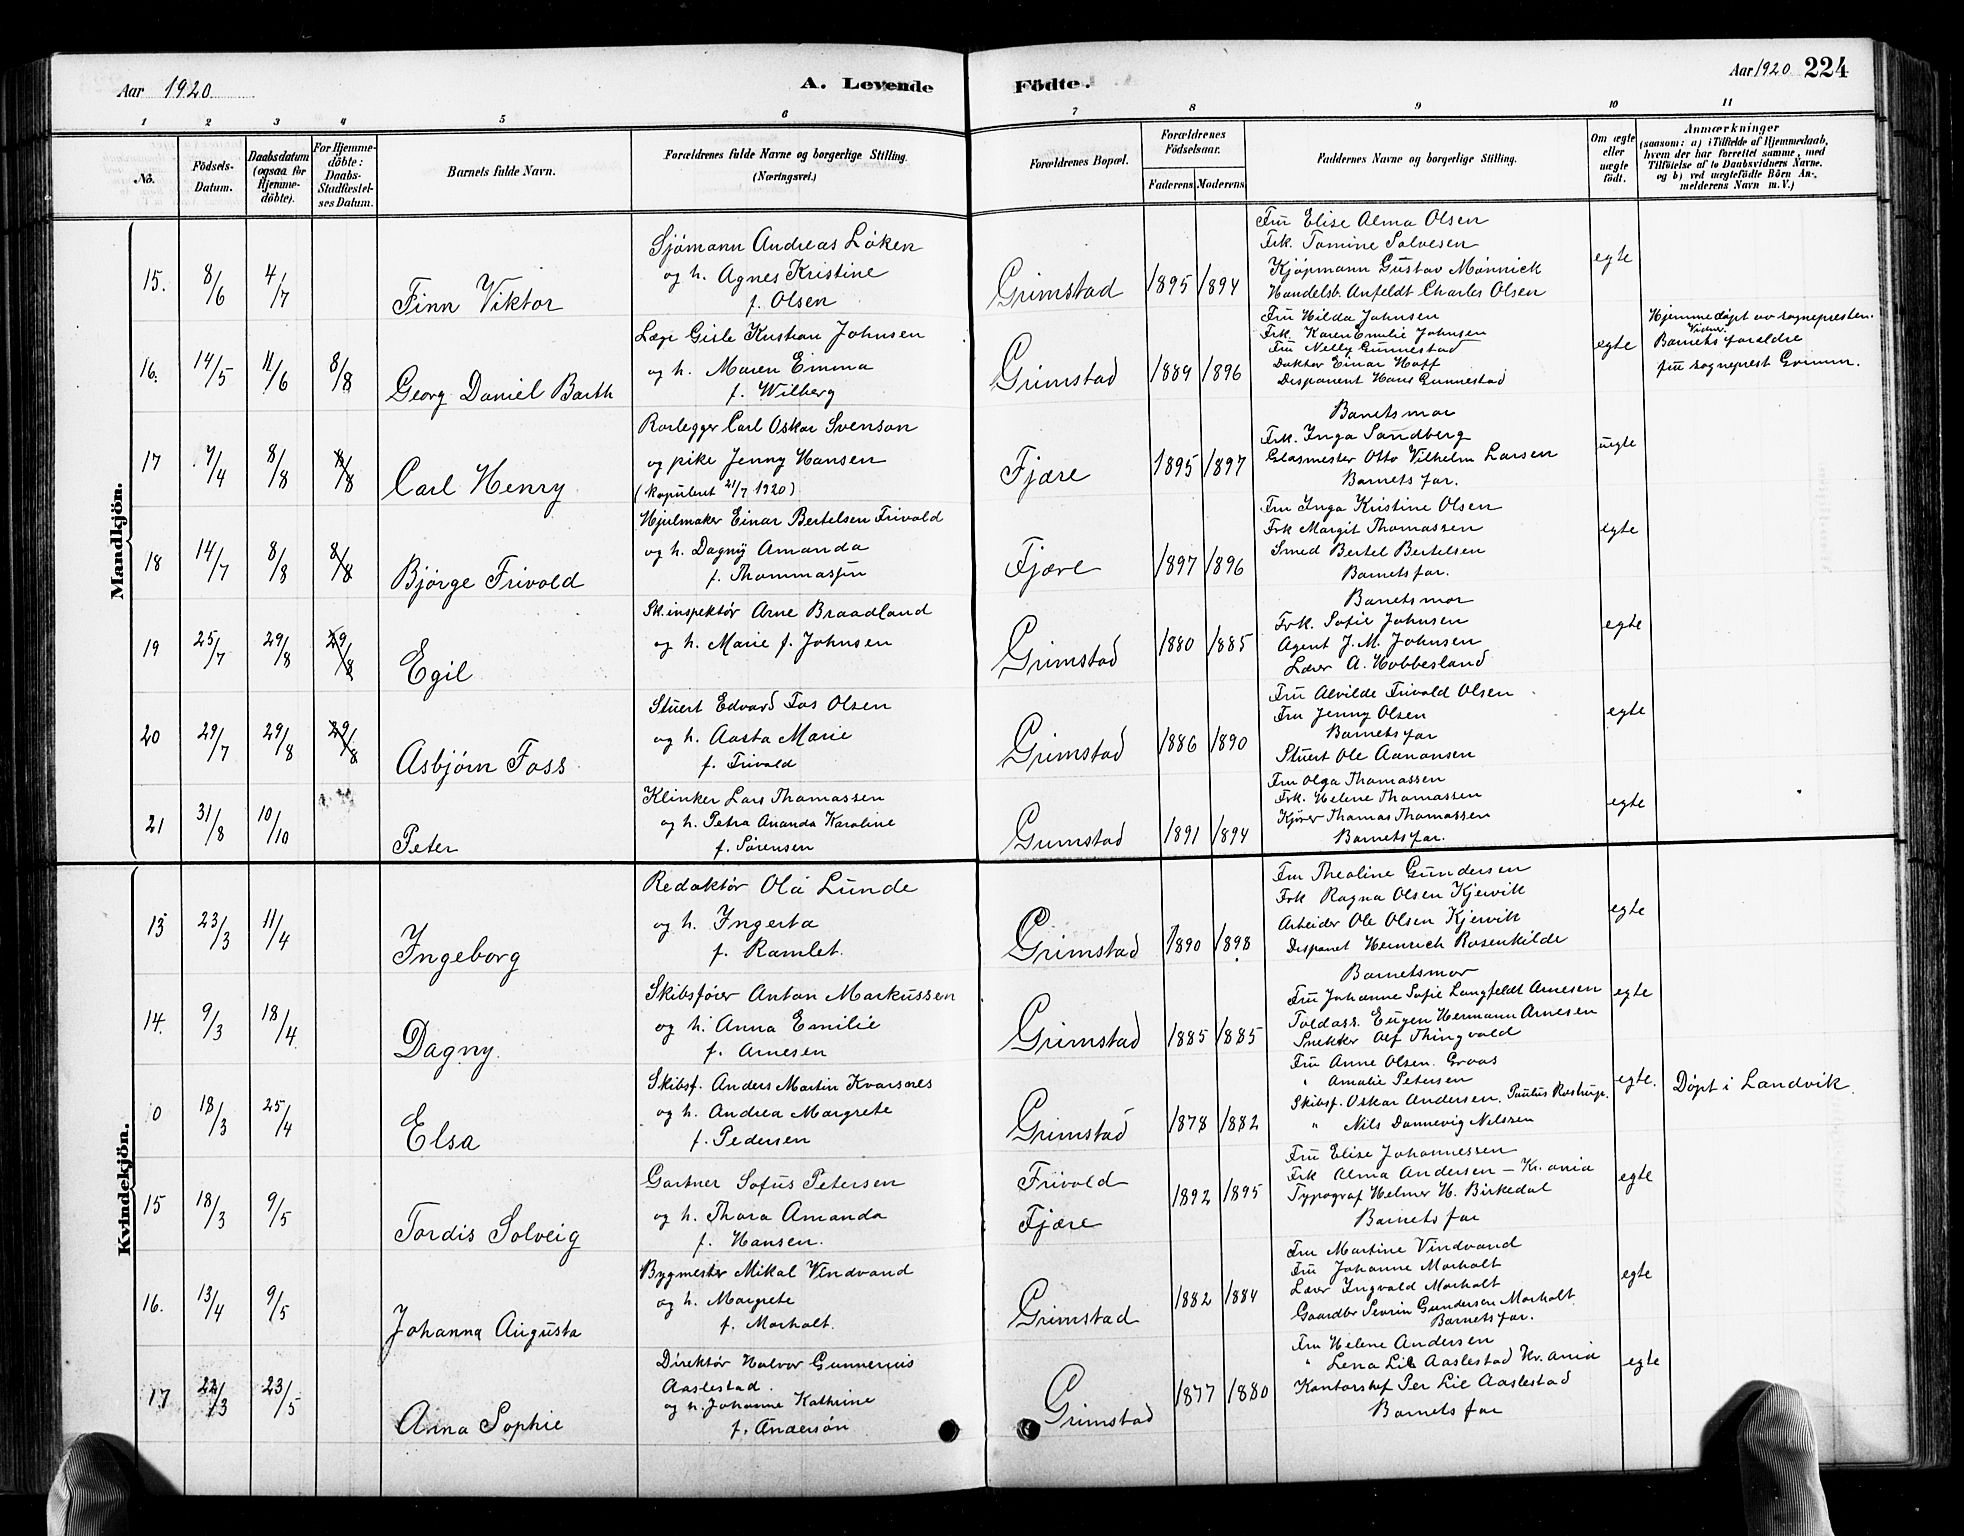 Aar 1920
A. Levende
Födte.
Aar 1920 224
1 2 3 4 5 6 7 8 9 10 11
No.
Födsels-Datum.
Daabsdatum (ogsaa for Hjemme-döbte).
For Hjemme-döbte: Daabs-Stadfæstel-ses Datum.
Barnets fulde Navn.
Forældrenes fulde Navne og borgerlige Stilling.
(Næringsvei.)
Forældrenes Bopæl.
Forældrenes Födselsaar.
Faderens Moderens
Faddernes Navne og borgerlige Stilling.
Om ægte eller uægte födt.
Anmærkninger
(saasom: a) i Tilfælde af Hjemmedaab, hvem der har forrettet samme, med Tilföielse af to Daabsvidners Navne, og b) ved uægtefödte Börn An-melderens Navn m. V.)
Mandkjön.
15. 8/6 4/7
Finn Viktor
Sjømann Andreas Løken
og h. Agnes Kristine
f. Olsen
Grimstad 1895 1894
Fru Elise Alma Olsen
Frk. Tomine Salvesen
Kjøpmann Gustav Mønnick
Handelsb. Anfeldt Charles Olsen
egte
16. 14/5 11/6 8/8
Georg Daniel Barth
Læge Gisle Kristian Johnsen
og h. Maren Emma
f. Wilberg
Grimstad 1889 1896
Fru Hilda Johnsen
Frk. Karen Emilie Johnsen
Fru Nelly Gunnestad
Doktor Einar Hoff
Disponent Hans Gunnestad
egte
Hjemmedøpt av sognepresten.
Vidner:
Barnets foreldre
fru sogneprest Grimm.
17 7/4 8/8 8/8
Carl Henry
Rørlegger Carl Oskar Svenson
og pike Jenny Hansen
(kopuleret 21/7 1920)
Fjære 1895 1897
Barnets mor
Frk. Inga Sandberg
Glasmester Otto Vilhelm Larsen
Barnets far.
uegte
18 14/7 8/8 8/8
Bjørge Frivold
Hjulmaker Einar Bertelsen Frivold
og h. Dagny Amanda
f. Thommassen
Fjære 1897 1896
Fru Inga Kristine Olsen
Frk Margit Thomassen
Smed Bertel Bertelsen
Barnets far.
egte
19 25/7 29/8 29/8
Egil
Sk.inspektør Arne Braadland
og h. Marie f. Johnsen
Grimstad 1880 1885
Barnets mor
Frk. Sofie Johnsen
Agent J. M. Johnsen
Lærer A. Hobbesland
egte
20 29/7 29/8 29/8
Asbjørn Foss
Stuert Edvard Fos Olsen
og h. Aasta Marie
f. Frivold
Grimstad 1886 1890
Fru Alvilde Frivold Olsen
Fru Jenny Olsen
Barnets far
Stuert Ole Aanonsen
egte
21 31/8 10/10
Peter
Klinker Lars Thomassen
og h. Petra Amanda Karoline
f. Sørensen
Grimstad 1891 1894
Fru Olga Thomassen
Frk. Helene Thomassen
Kjører Thomas Thomassen
Barnets far.
egte
Kvindekjön.
13 23/3 11/4
Ingeborg
Redaktør Ola Lunde
og h. Ingerta
f. Ramlet.
Grimstad 1890 1898
Fru Thealine Gundersen
Frk Ragna Olsen Kjervik
Arbeider Ole Olsen Kjervik
Disponet Heinrich Rosenkilde
egte
14. 9/3 18/4
Dagny
Skibsfører Anton Markussen
og h. Anna Emilie
f. Arnesen
Grimstad 1885 1885
Barnets mor
Fru Johanne Sofie Langfeldt Arnesen
Toldass. Eugen Hermann Arnesen
Snekker Alf Thingvold
egte
0 18/3 25/4
Elsa
Skibsf. Anders Martin Kvarsnes
og h. Andrea Margrete
f. Pedersen
Grimstad 1878 1882
Fru Anne Olsen Groos
" Amalie Petersen
Skibsf. Oskar Andersen, Paulus Rostrup.
" Nils Dannevig Nilssen
egte.
Døpt i Landvik
15 18/3 9/5
Tordis Solveig
Gartner Sofus Petersen
og h. Thora Amanda
f. Hansen.
Frivold
Fjære
1892 1895
Fru Elise Johannessen
Frk Alma Andersen - Kr.ania
Typograf Helmer H. Birkedal
Barnets far
egte
16. 13/4 9/5
Johanna Augusta
Bygmester Mikal Vindvand
og h. Margrete
f. Morholt.
Grimstad 1882 1884
Fru Martine Vindvand
Fru Johanne Morholt
Lærer Ingvald Morholt
Gaardbr Severin Gundersen Morholt
Barnets far.
egte
17 22/3 23/5
Anna Sophie
Direktør Halvor Gunnerius
Aaslestad.
og h. Johanne Kathrine
f. Andersøn
Grimstad 1877 1880
Fru Helene Andersen
" Lena Lie Aaslestad Kr.ania
Kontorchef Per Lie Aaslestad
Barnets far
egte